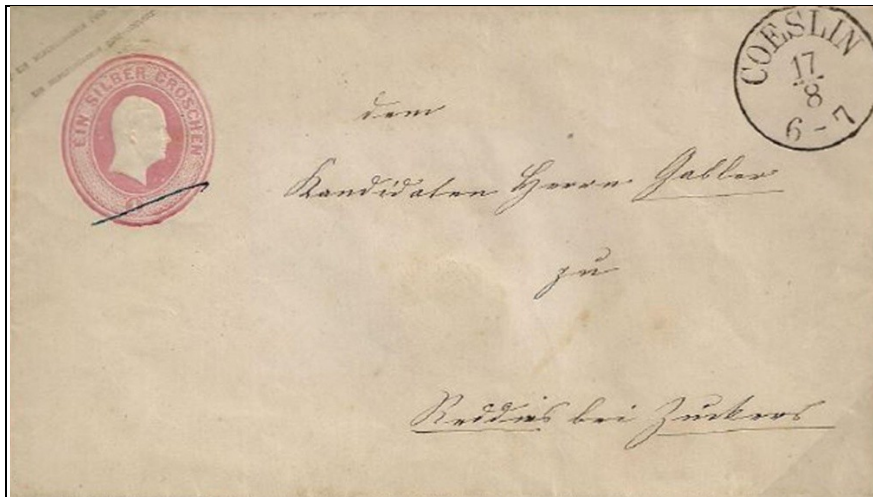 EIN SILBER GROSCHEN
1
COESLIN
17
8
6-7
dem
Kandidaten Herrn Gabler
zu
Reddies bei Zuckers